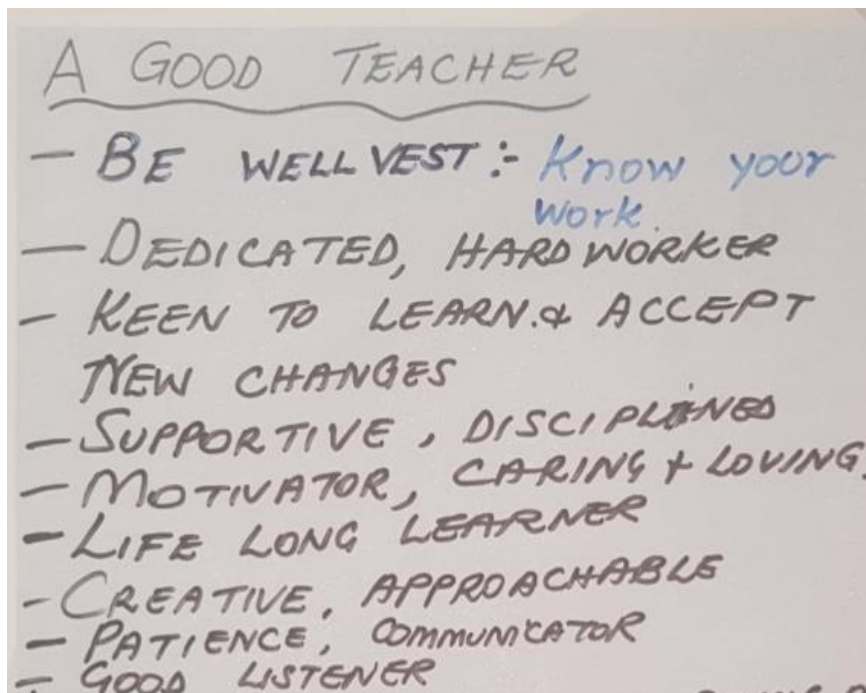 A GOOD TEACHER
- BE WELL VEST :- Know your
work.
- DEDICATED, HARD WORKER
- KEEN TO LEARN. & ACCEPT
NEW CHANGES
- SUPPORTIVE, DISCIPLINED
- MOTIVATOR, CARING + LOVING.
- LIFE LONG LEARNER
- CREATIVE, APPROACHABLE
- PATIENCE, COMMUNICATOR
- GOOD LISTENER